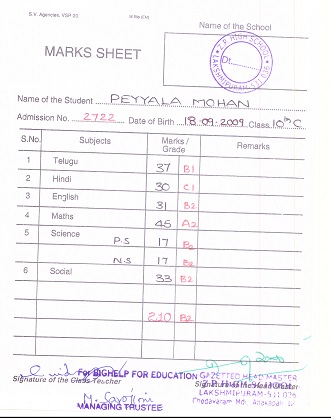 S.V. Agencies, VSP 20
Name of the School
MARKS SHEET
Z.P. HIGH SCHOOL
Dt.
Name of the Student PEYYALA MOHAN
Admission No. 2722 Date of Birth 18.09.2009 Class 10th C
S.No. Subjects Marks / Grade Remarks
1 Telugu 37 B1
2 Hindi 30 C1
3 English 31 B2
4 Maths 45 A2
5 Science P.S 17 B2
N.S 17 B2
6 Social 33 B2
210 B2
For BIGHELP FOR EDUCATION GAZETTED HEAD MASTER
Signature of the Class Teacher Signature of the Head Master
Z.P. HIGH SCHOOL
LAKSHMIPURAM-531 026
MANAGING TRUSTEE